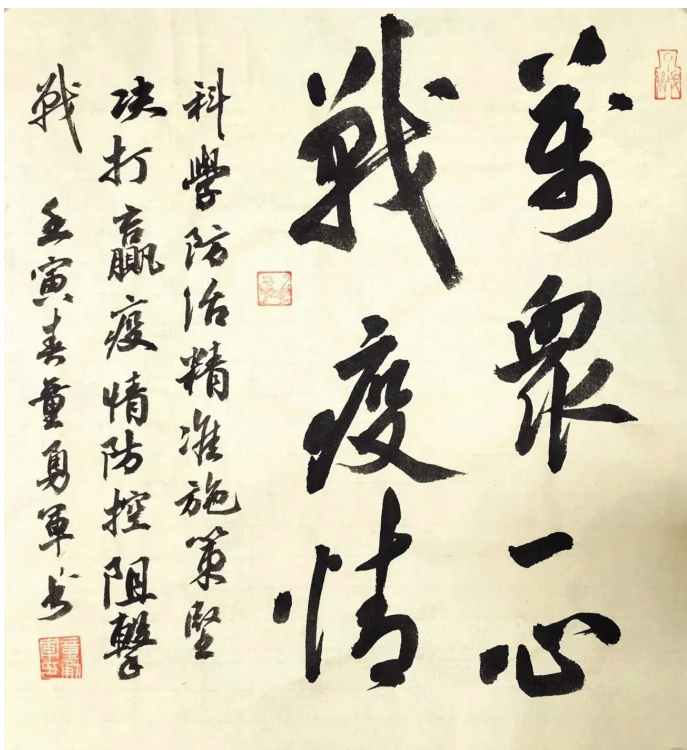 萬眾一心
戰疫情
科學防治精准施策堅
决打贏疫情防控阻擊
戰 壬寅春童勇軍书